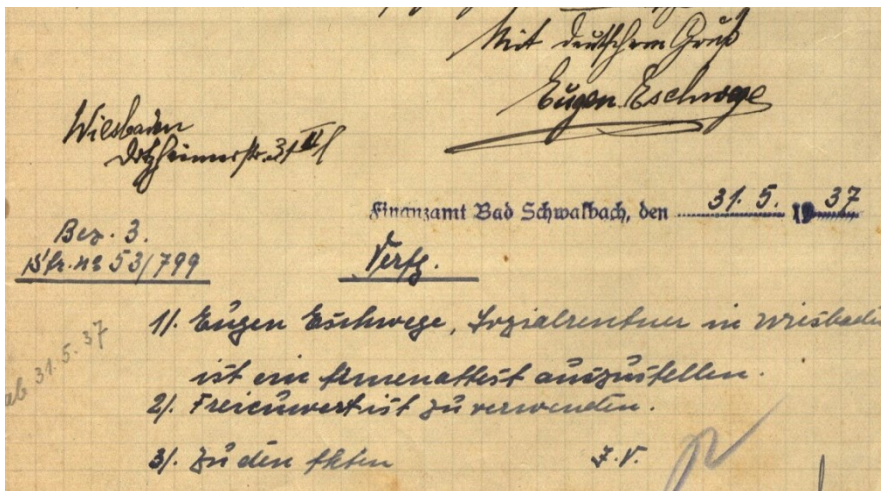 Mit deutschem Gruß
Eugen Eschwege
Wiesbaden
Dotzheimerstr. 31 II l
Finanzamt Bad Schwalbach, den 31. 5. 1937
Bez. 3.
53/799
Verfg.
1/. Eugen Eschwege, Sozialrentner in Wiesbaden
ist ein Armenattest auszustellen.
2/. Freicuwert ist zu verwenden.
3/. Zu den Akten
J. V.
ab 31. 5. 37